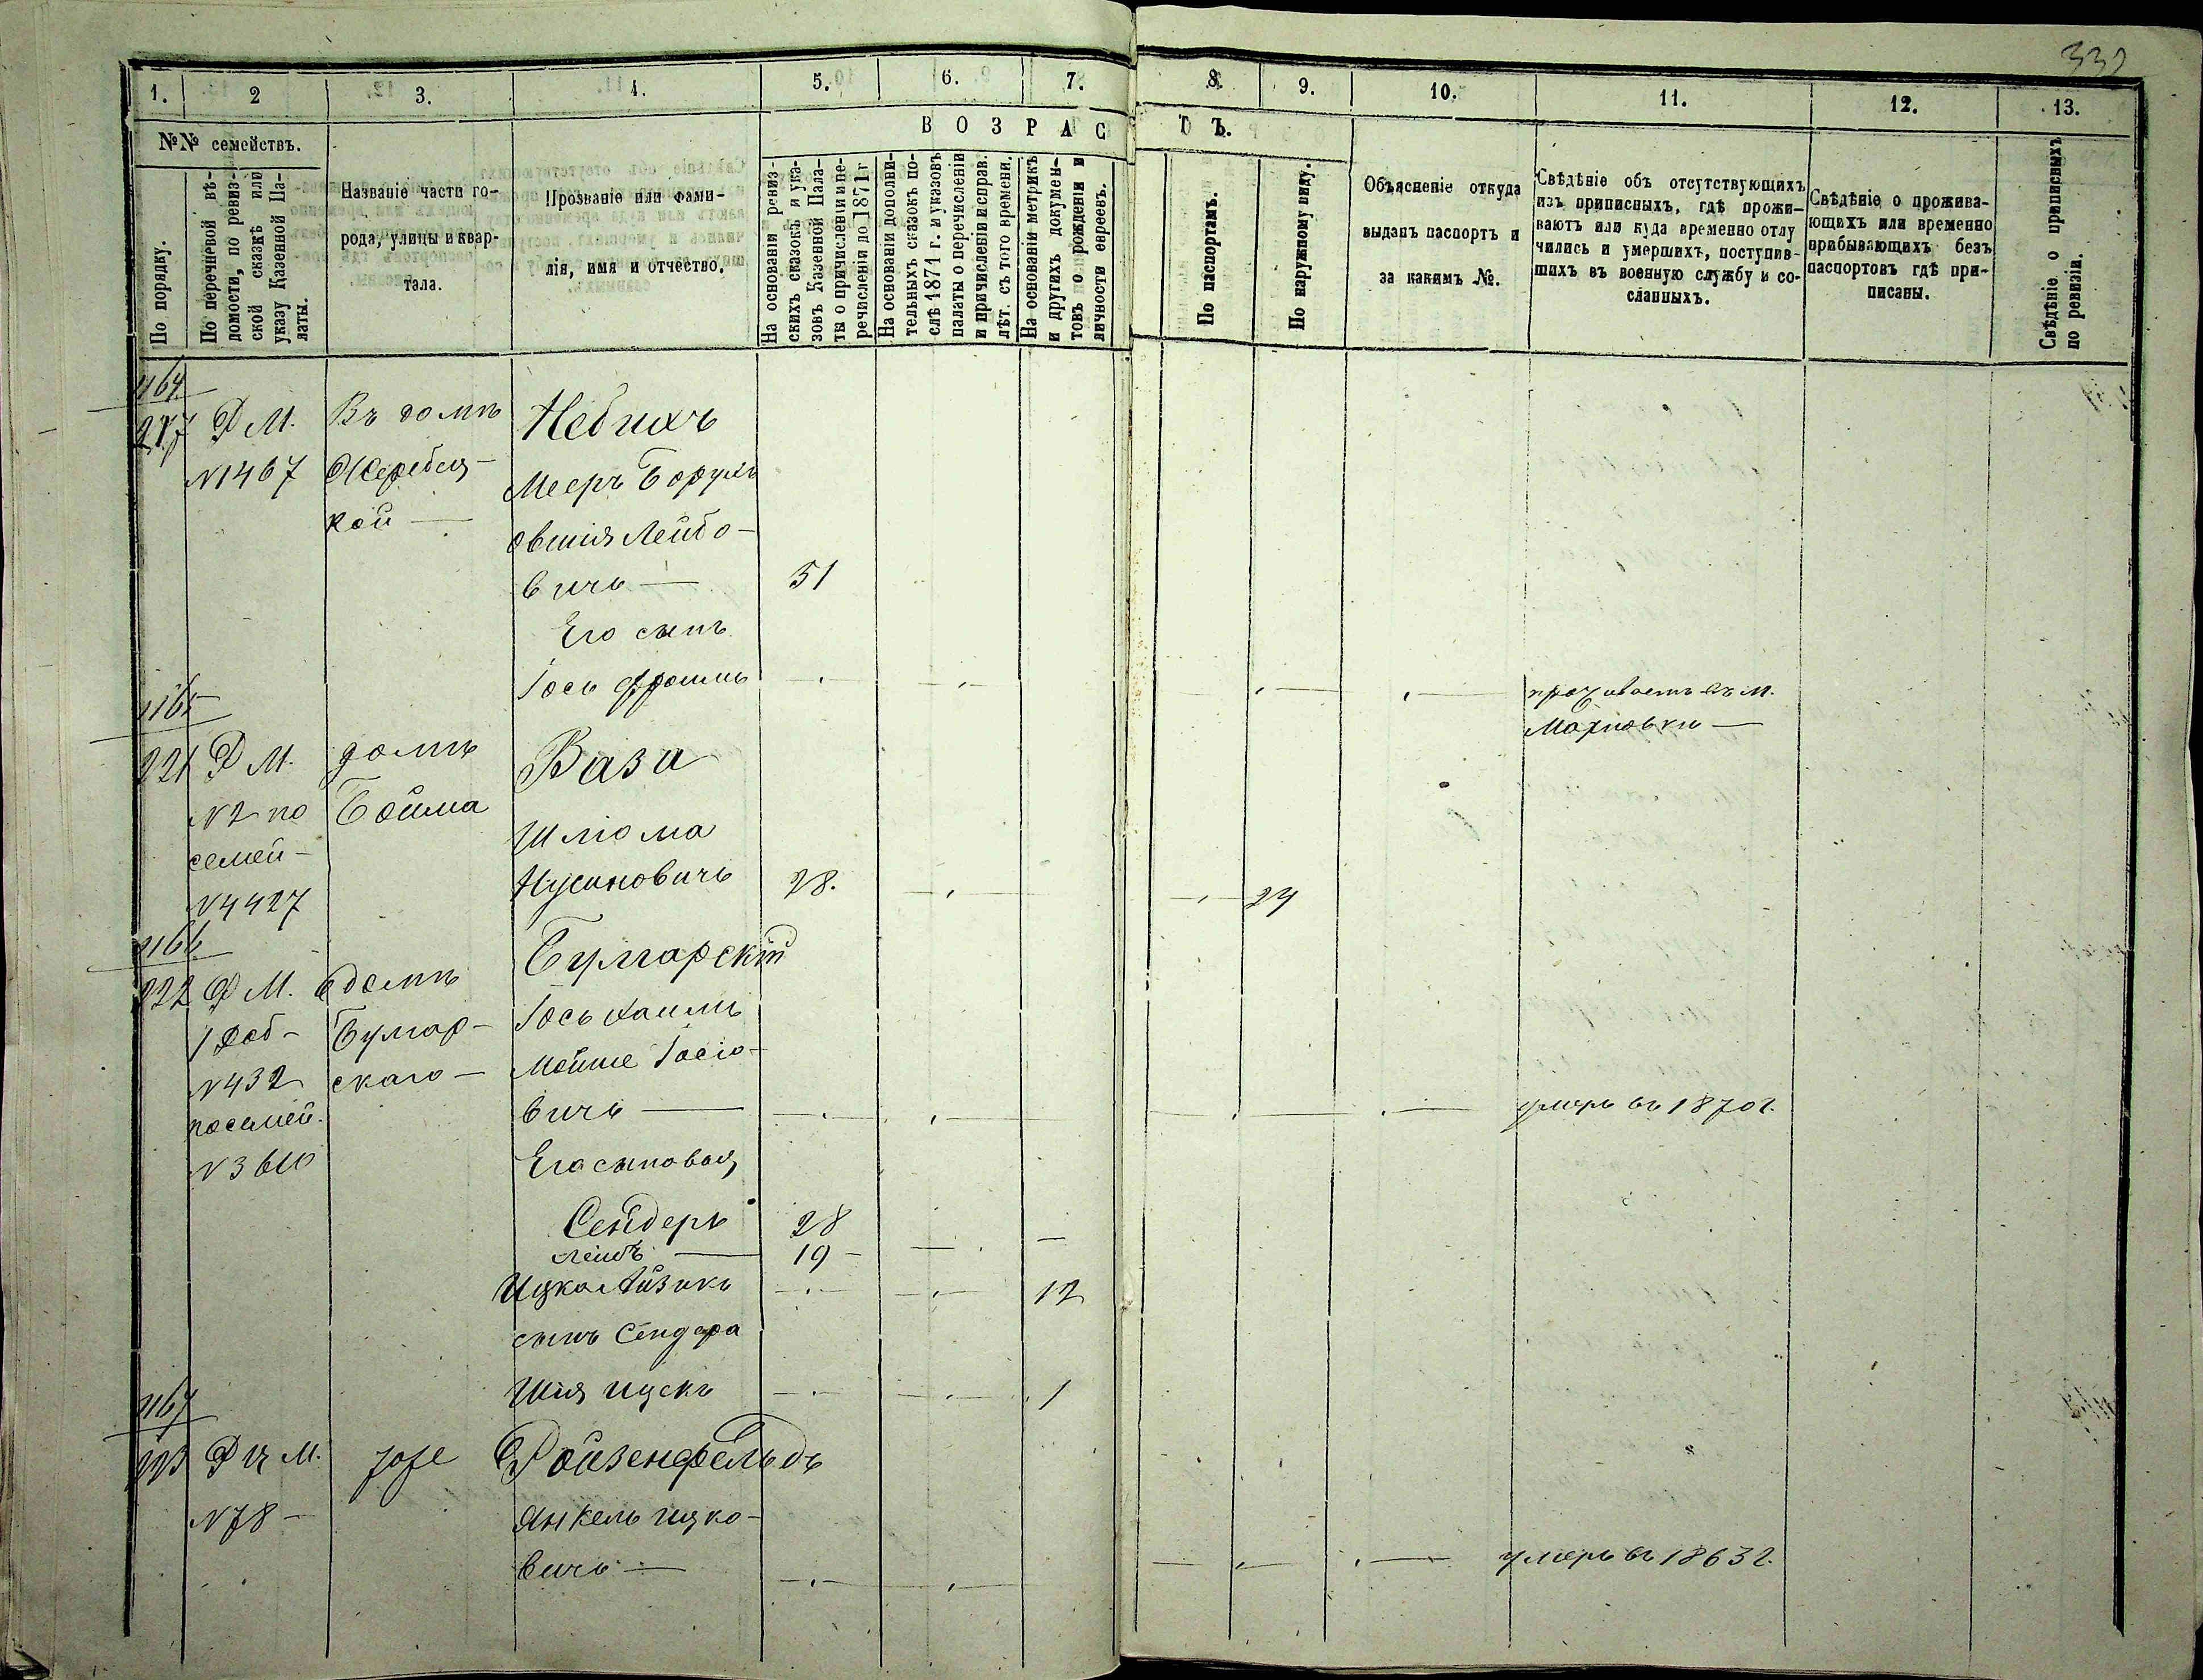 332
1. 2 3. 4. 5. 6. 7. 8. 9. 10. 11. 12. 13.
№№ семействъ.
По порядку.
По перечневой вѣ-
домости, по ревиз-
ской сказкѣ или
указу Казенной Па-
латы.
Названіе части го-
рода, улицы и квар-
тала.
Прозваніе или фами-
лія, имя и отчество.
ВОЗРАСТЪ.
На основаніи ревиз-
скихъ сказокъ и ука-
зовъ Казенной Пала-
ты о причисленіи и пе-
речисленіи до 1871 г
На основаніи дополни-
тельныхъ сказокъ по-
слѣ 1871 г. и указовъ
палаты о перечисленіи
и причисленіи и справ.
лѣт. съ того времени.
На основаніи метрикъ
и другихъ докумен-
товъ о рожденіи и
личности евреевъ.
По паспортамъ.
По наружному виду.
Объясненіе откуда
выданъ паспортъ и
за какимъ №.
Свѣдѣніе объ отсутствующихъ
изъ приписныхъ, гдѣ прожи-
ваютъ или куда временно отлу
чились и умершихъ, поступив-
шихъ въ военную службу и со-
сланныхъ.
Свѣдѣніе о прожива-
ющихъ или временно
прибывающихъ безъ
паспортовъ гдѣ при-
писаны.
Свѣдѣніе о приписныхъ
по ревизіи.
1164
217 Д М. Въ домѣ Небихъ
№1467 Жеребец- Мееръ Борухъ
кой — Овшія Лейбо-
вичъ — 51
Его сынъ
Іось Фроимъ проживаетъ въ М.
Махновки —
1165
221 Д М. домѣ Ваза
№2 по Бойма Шлiома
семей- Нусиновичъ 28. 24
№4427
1166
222 Д М. в домѣ Булгарскій
1 Доб- Булгар- Іось Хаимъ
№432 скаго — Мойше Іосіо-
посемей. вичъ — умеръ въ 1870 г.
№3610 Его сыновья
Сендеръ 28
Лейбъ — 19 —
Ицко Айзикъ 12
сынъ Сендера
Шія Ицекъ 1
1167
223 Д Ц М. Ройзенфельдъ
№78 — Янкель Ицко-
вичъ — умеръ въ 1863 г.